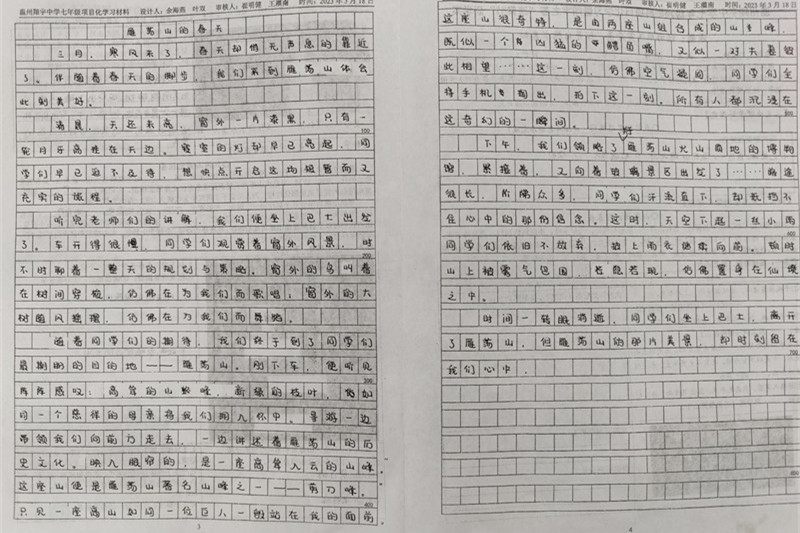 温州翔宇中学七年级项目化学习材料 设计人：余海燕 叶双 审核人：崔明健 王灉南 时间：2023年3月18日
雁荡山的春天
三月，寒风末了，春天却悄无声息的靠近
了。伴随着春天的脚步，我们来到雁荡山体会
此刻美好。
清晨，天还未亮，窗外一片漆黑，只有一
轮月牙高挂在天边。寝室的灯却早已亮起，同
学们早已迫不及待，想快点开启这场短暂而又
充实的旅程。
听完老师们的讲解，我们便坐上巴士出发
了。车开得很慢，同学们观赏着窗外风景，时
不时聊着一整天的规划与策略。窗外的鸟叫着
在树间穿梭，仿佛在为我们而歌唱；窗外的大
树随风摇摆，仿佛在为我们而舞蹈。
随着同学们的期待，我们终于到了同学们
最期盼的目的地——雁荡山。刚下车，便听见
阵阵感叹：高耸的山峰，新绿的枝叶，仿如
同一个慈祥的母亲将我们拥入怀中。导游一边
带领我们向前方走去，一边讲述着雁荡山的历
史文化。映入眼帘的，是一座高耸入云的山峰
这座山便是雁荡山著名山峰之一——剪刀峰。
只见一座高山如同一位巨人一般站在我的面前
3
这座山很奇特，是由两座山组合成的山峰，
既似一个凶猛的鳄鱼嘴，又似一对夫妻彼
此相望……这一刻，仿佛空气凝固，同学们全
将手机掏出，拍下这一刻。所有人都沉浸在
这奇幻的一瞬间。
下午，我们领略了雁荡山火山园地的博物
馆，累接着，又向着拍摄景区出发了……路途
很长，阶梯众多，同学们汗流直下，却抵挡不
住心中的那份信念。这时，天空下起一丝小雨
同学们依旧不放弃，披上雨衣继续向前。顿时
山上被雾气包围，若隐若现，仿佛置身在仙境
之中。
时间一转眼消逝，同学们坐上巴士，离开
了雁荡山，但雁荡山的那片美景，却时刻留在
我们心中。
4